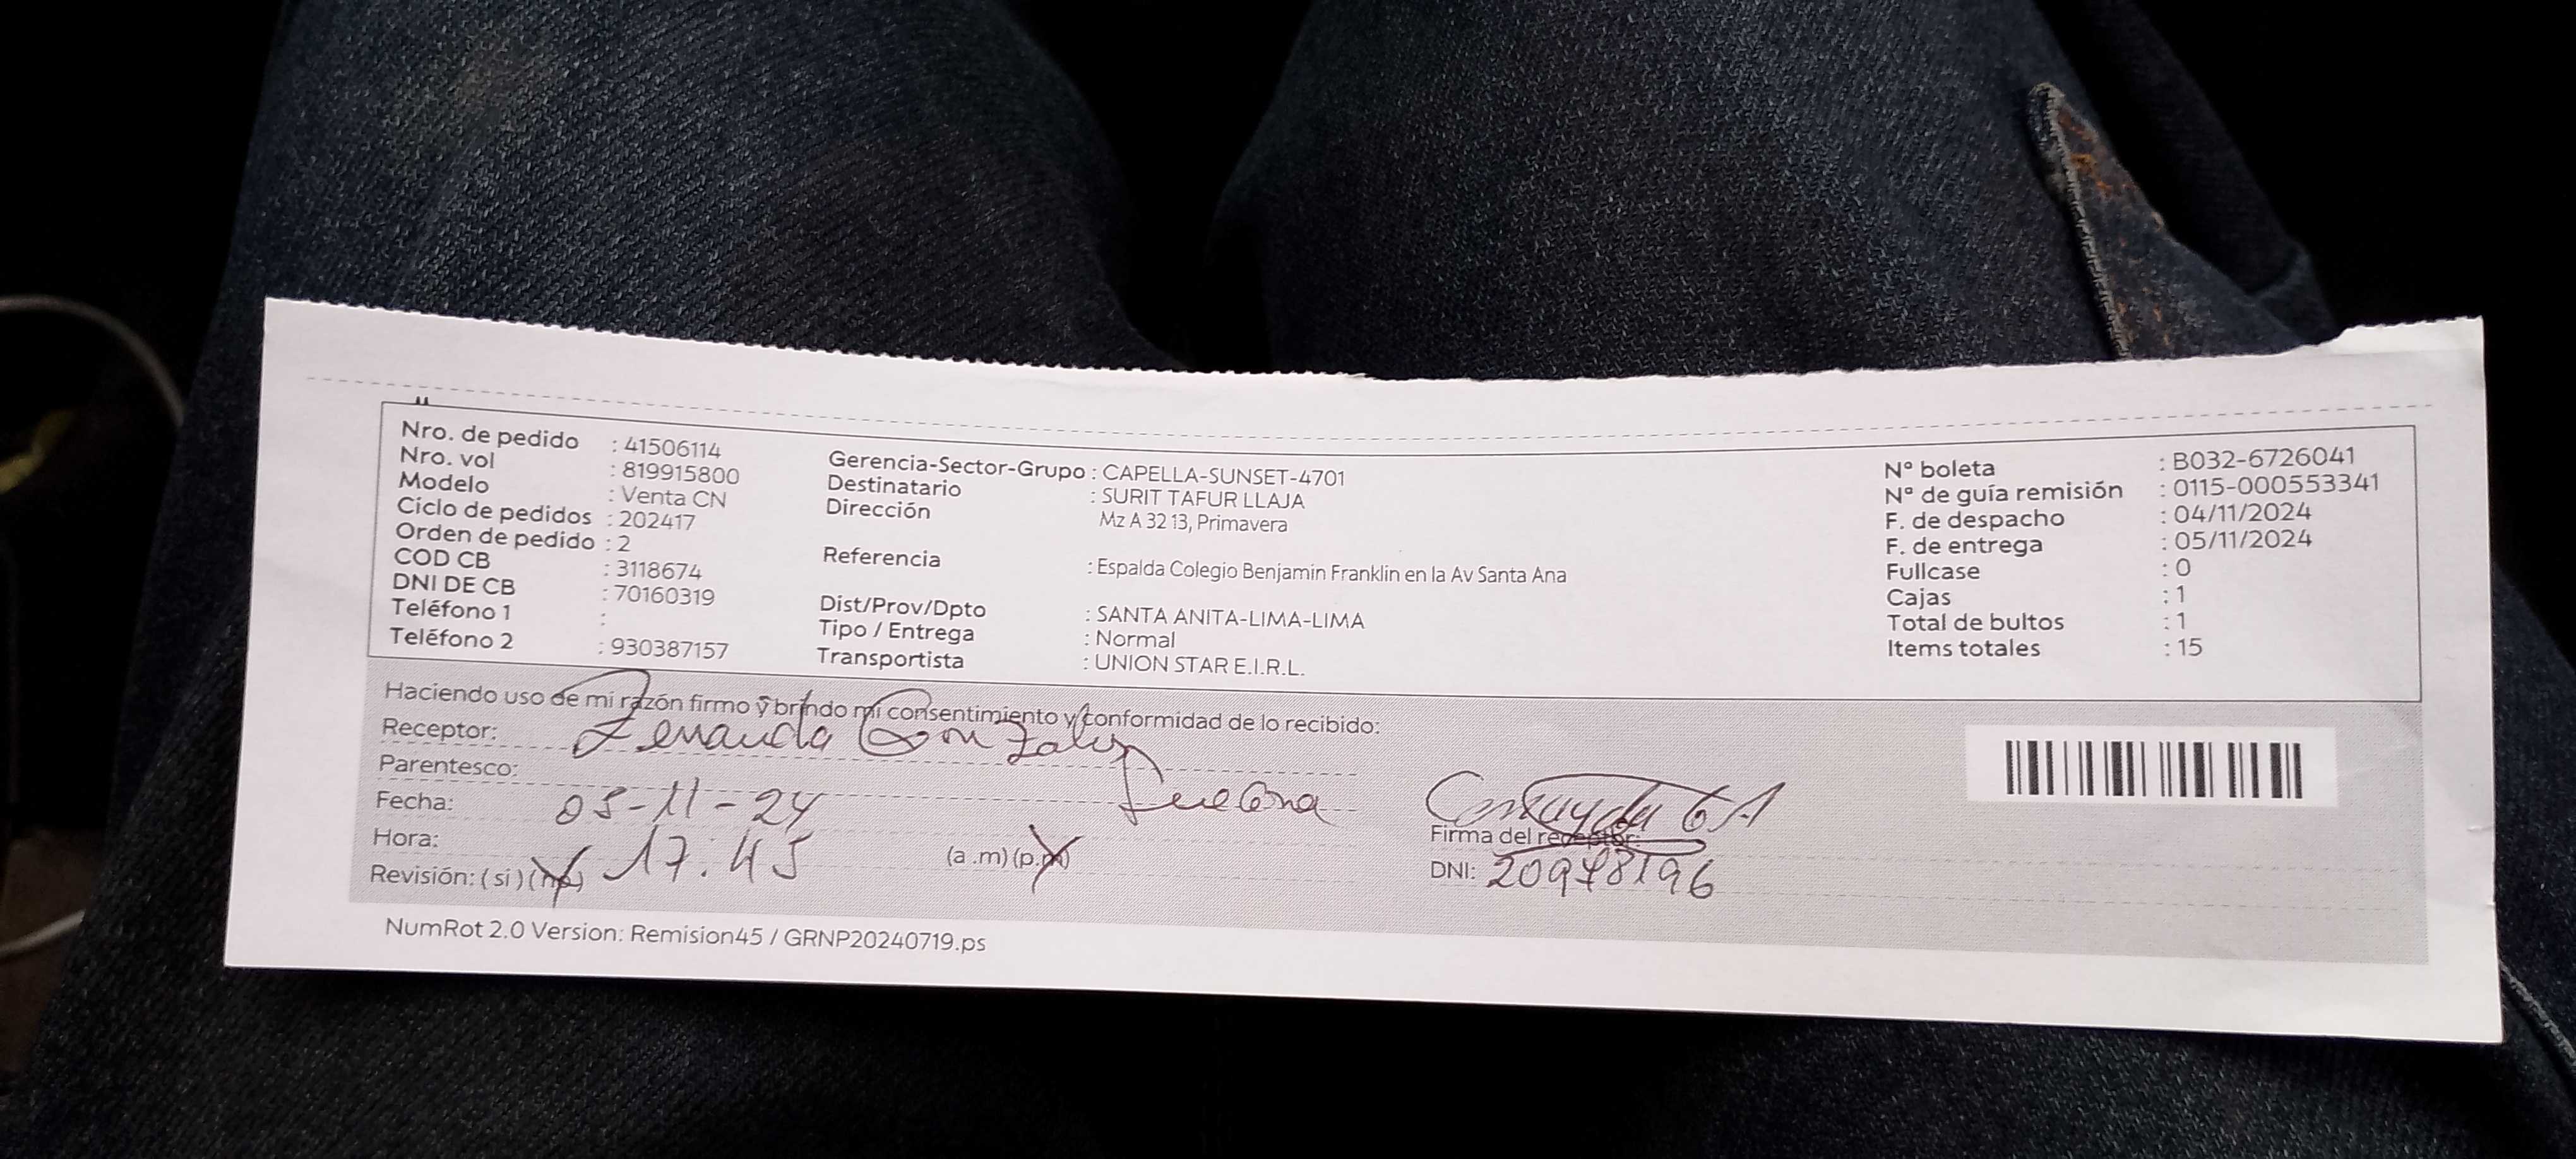 Nro. de pedido : 41506114
Nro. vol : 819915800
Modelo : Venta CN
Ciclo de pedidos : 202417
Orden de pedido : 2
COD CB : 3118674
DNI DE CB : 70160319
Teléfono 1 :
Teléfono 2 : 930387157
Gerencia-Sector-Grupo : CAPELLA-SUNSET-4701
Destinatario : SURIT TAFUR LLAJA
Dirección Mz A 32 13, Primavera
Referencia : Espalda Colegio Benjamin Franklin en la Av Santa Ana
Dist/Prov/Dpto : SANTA ANITA-LIMA-LIMA
Tipo / Entrega : Normal
Transportista : UNION STAR E.I.R.L.
Nº boleta : B032-6726041
Nº de guía remisión : 0115-000553341
F. de despacho : 04/11/2024
F. de entrega : 05/11/2024
Fullcase : 0
Cajas : 1
Total de bultos : 1
Items totales : 15
Haciendo uso de mi razón firmo y brindo mi consentimiento y conformidad de lo recibido:
Receptor:
Parentesco:
Fecha: 05-11-24
Hora: 17.45 (a .m) (p.m)
Revisión: ( si ) ( no )
Firma del receptor:
DNI: 20978196
NumRot 2.0 Version: Remision45 / GRNP20240719.ps